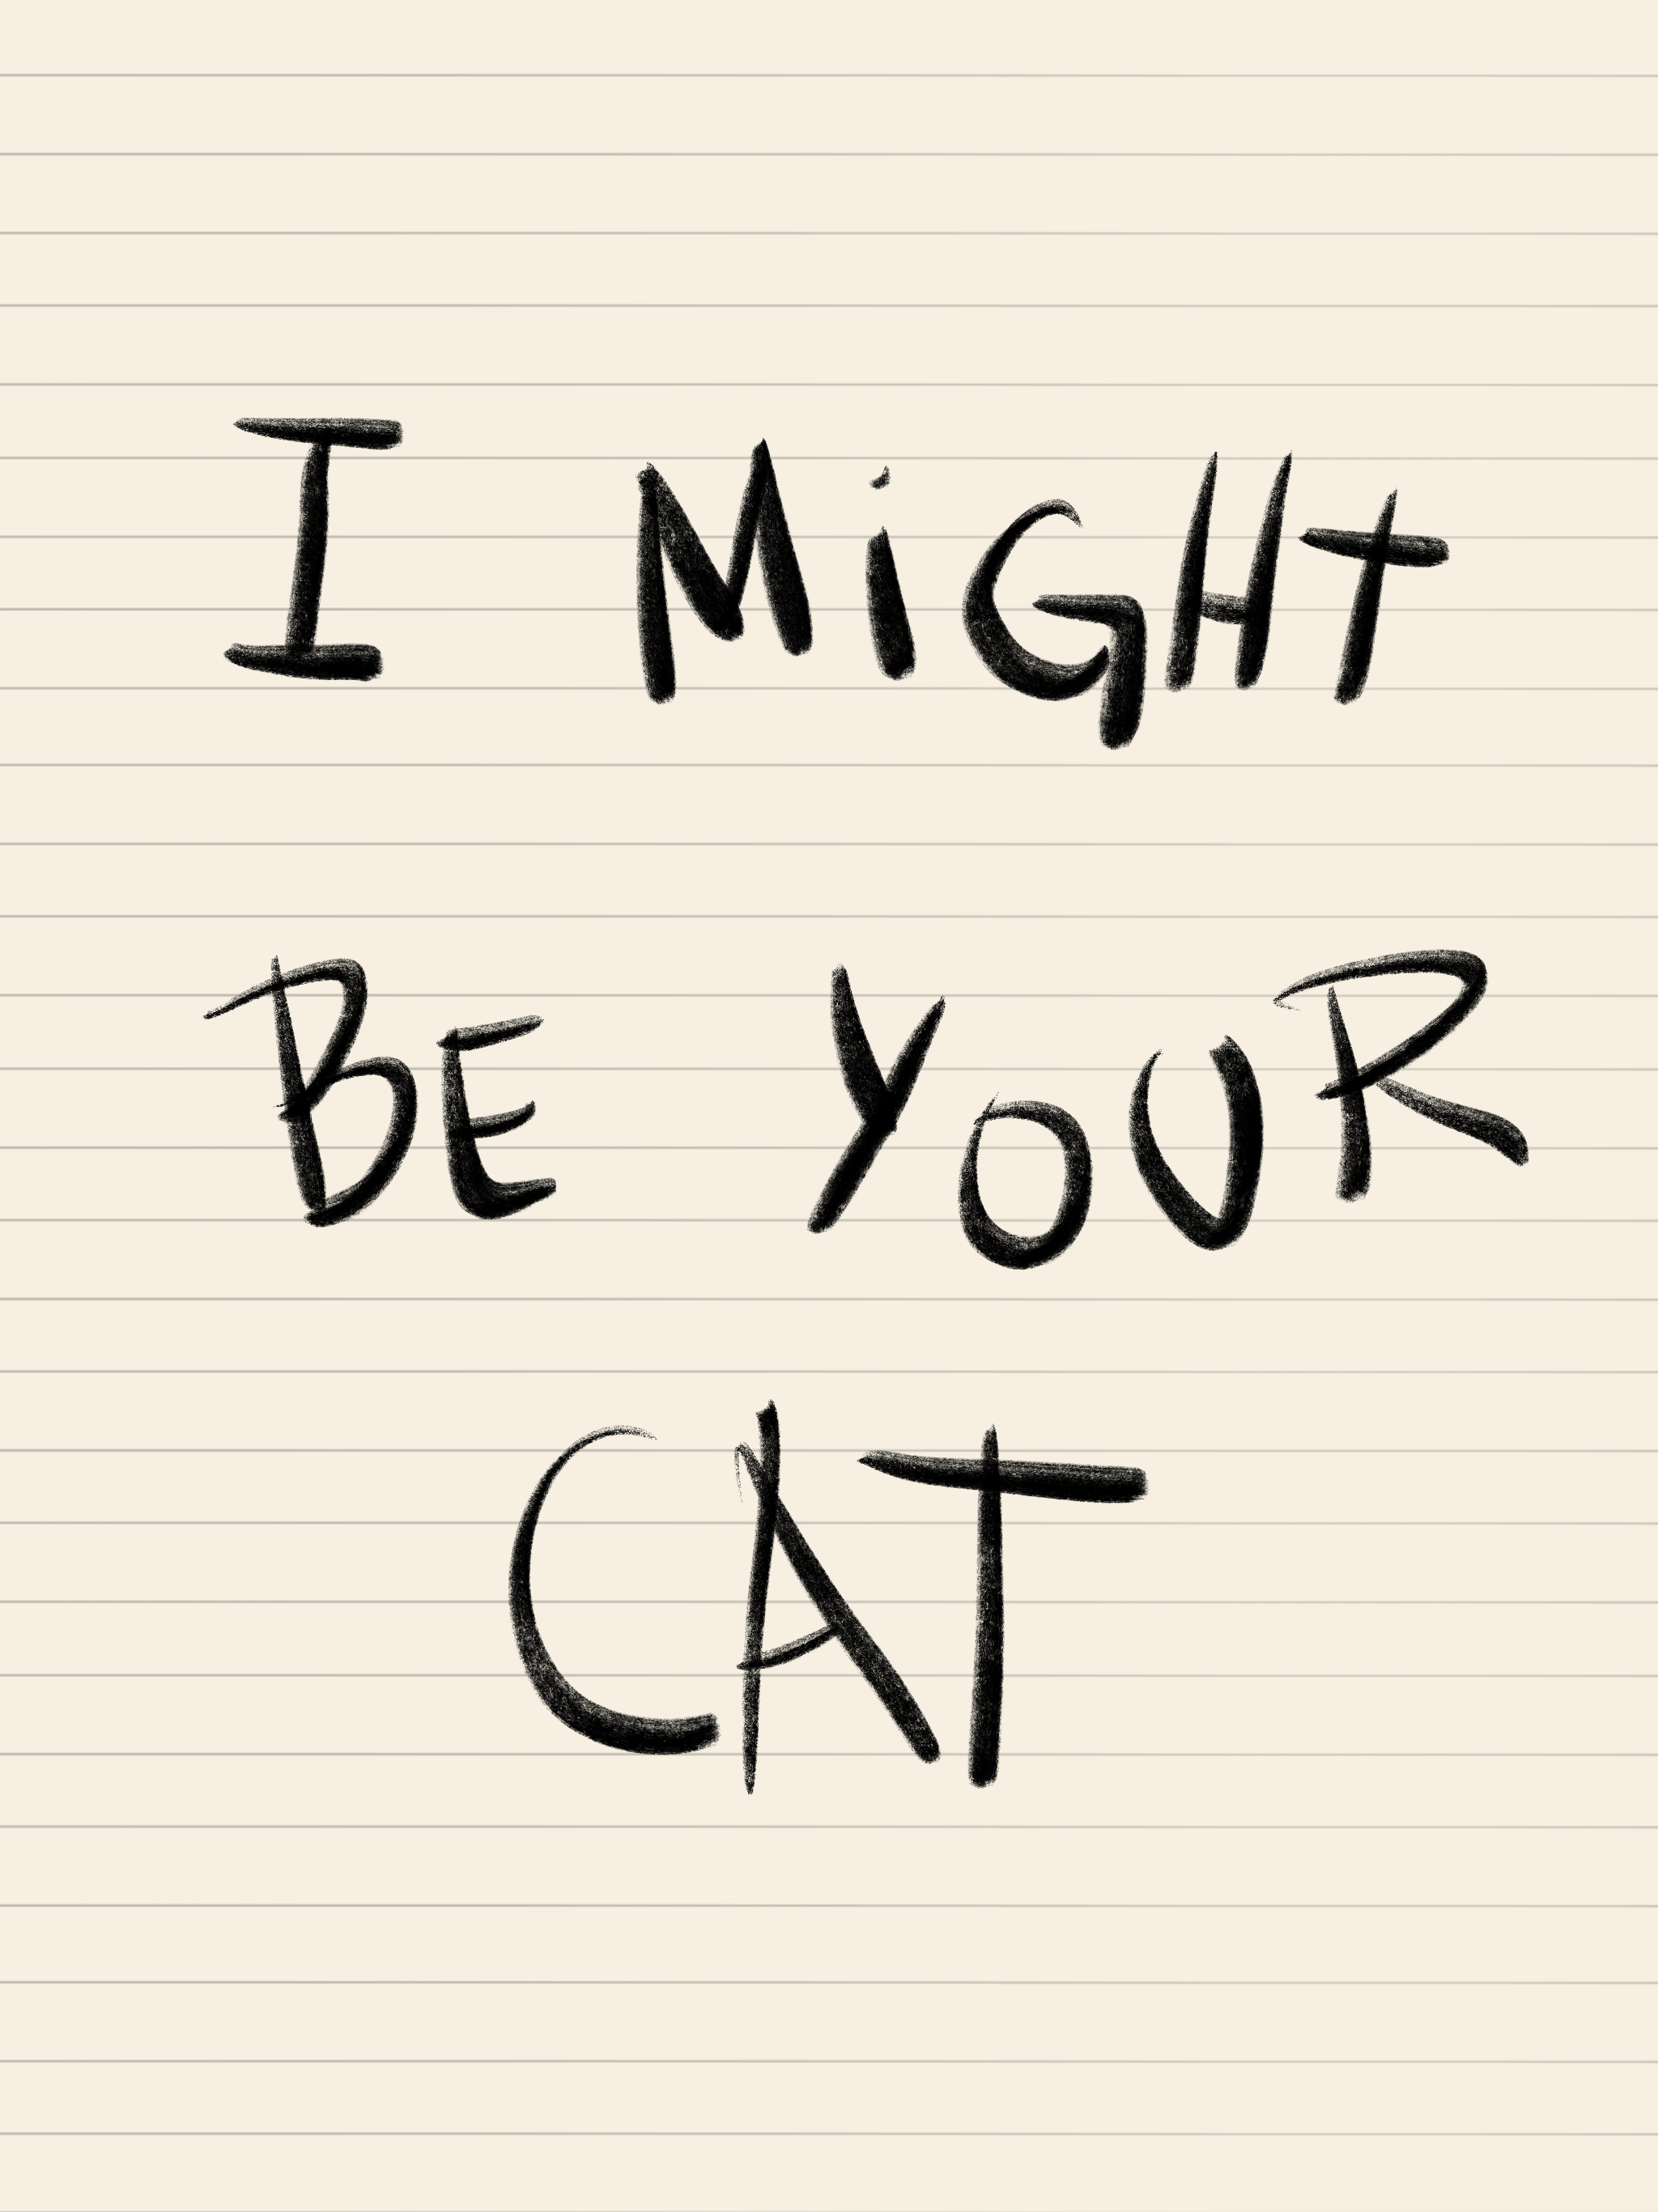 I MiGHt
BE YOUR
CAT